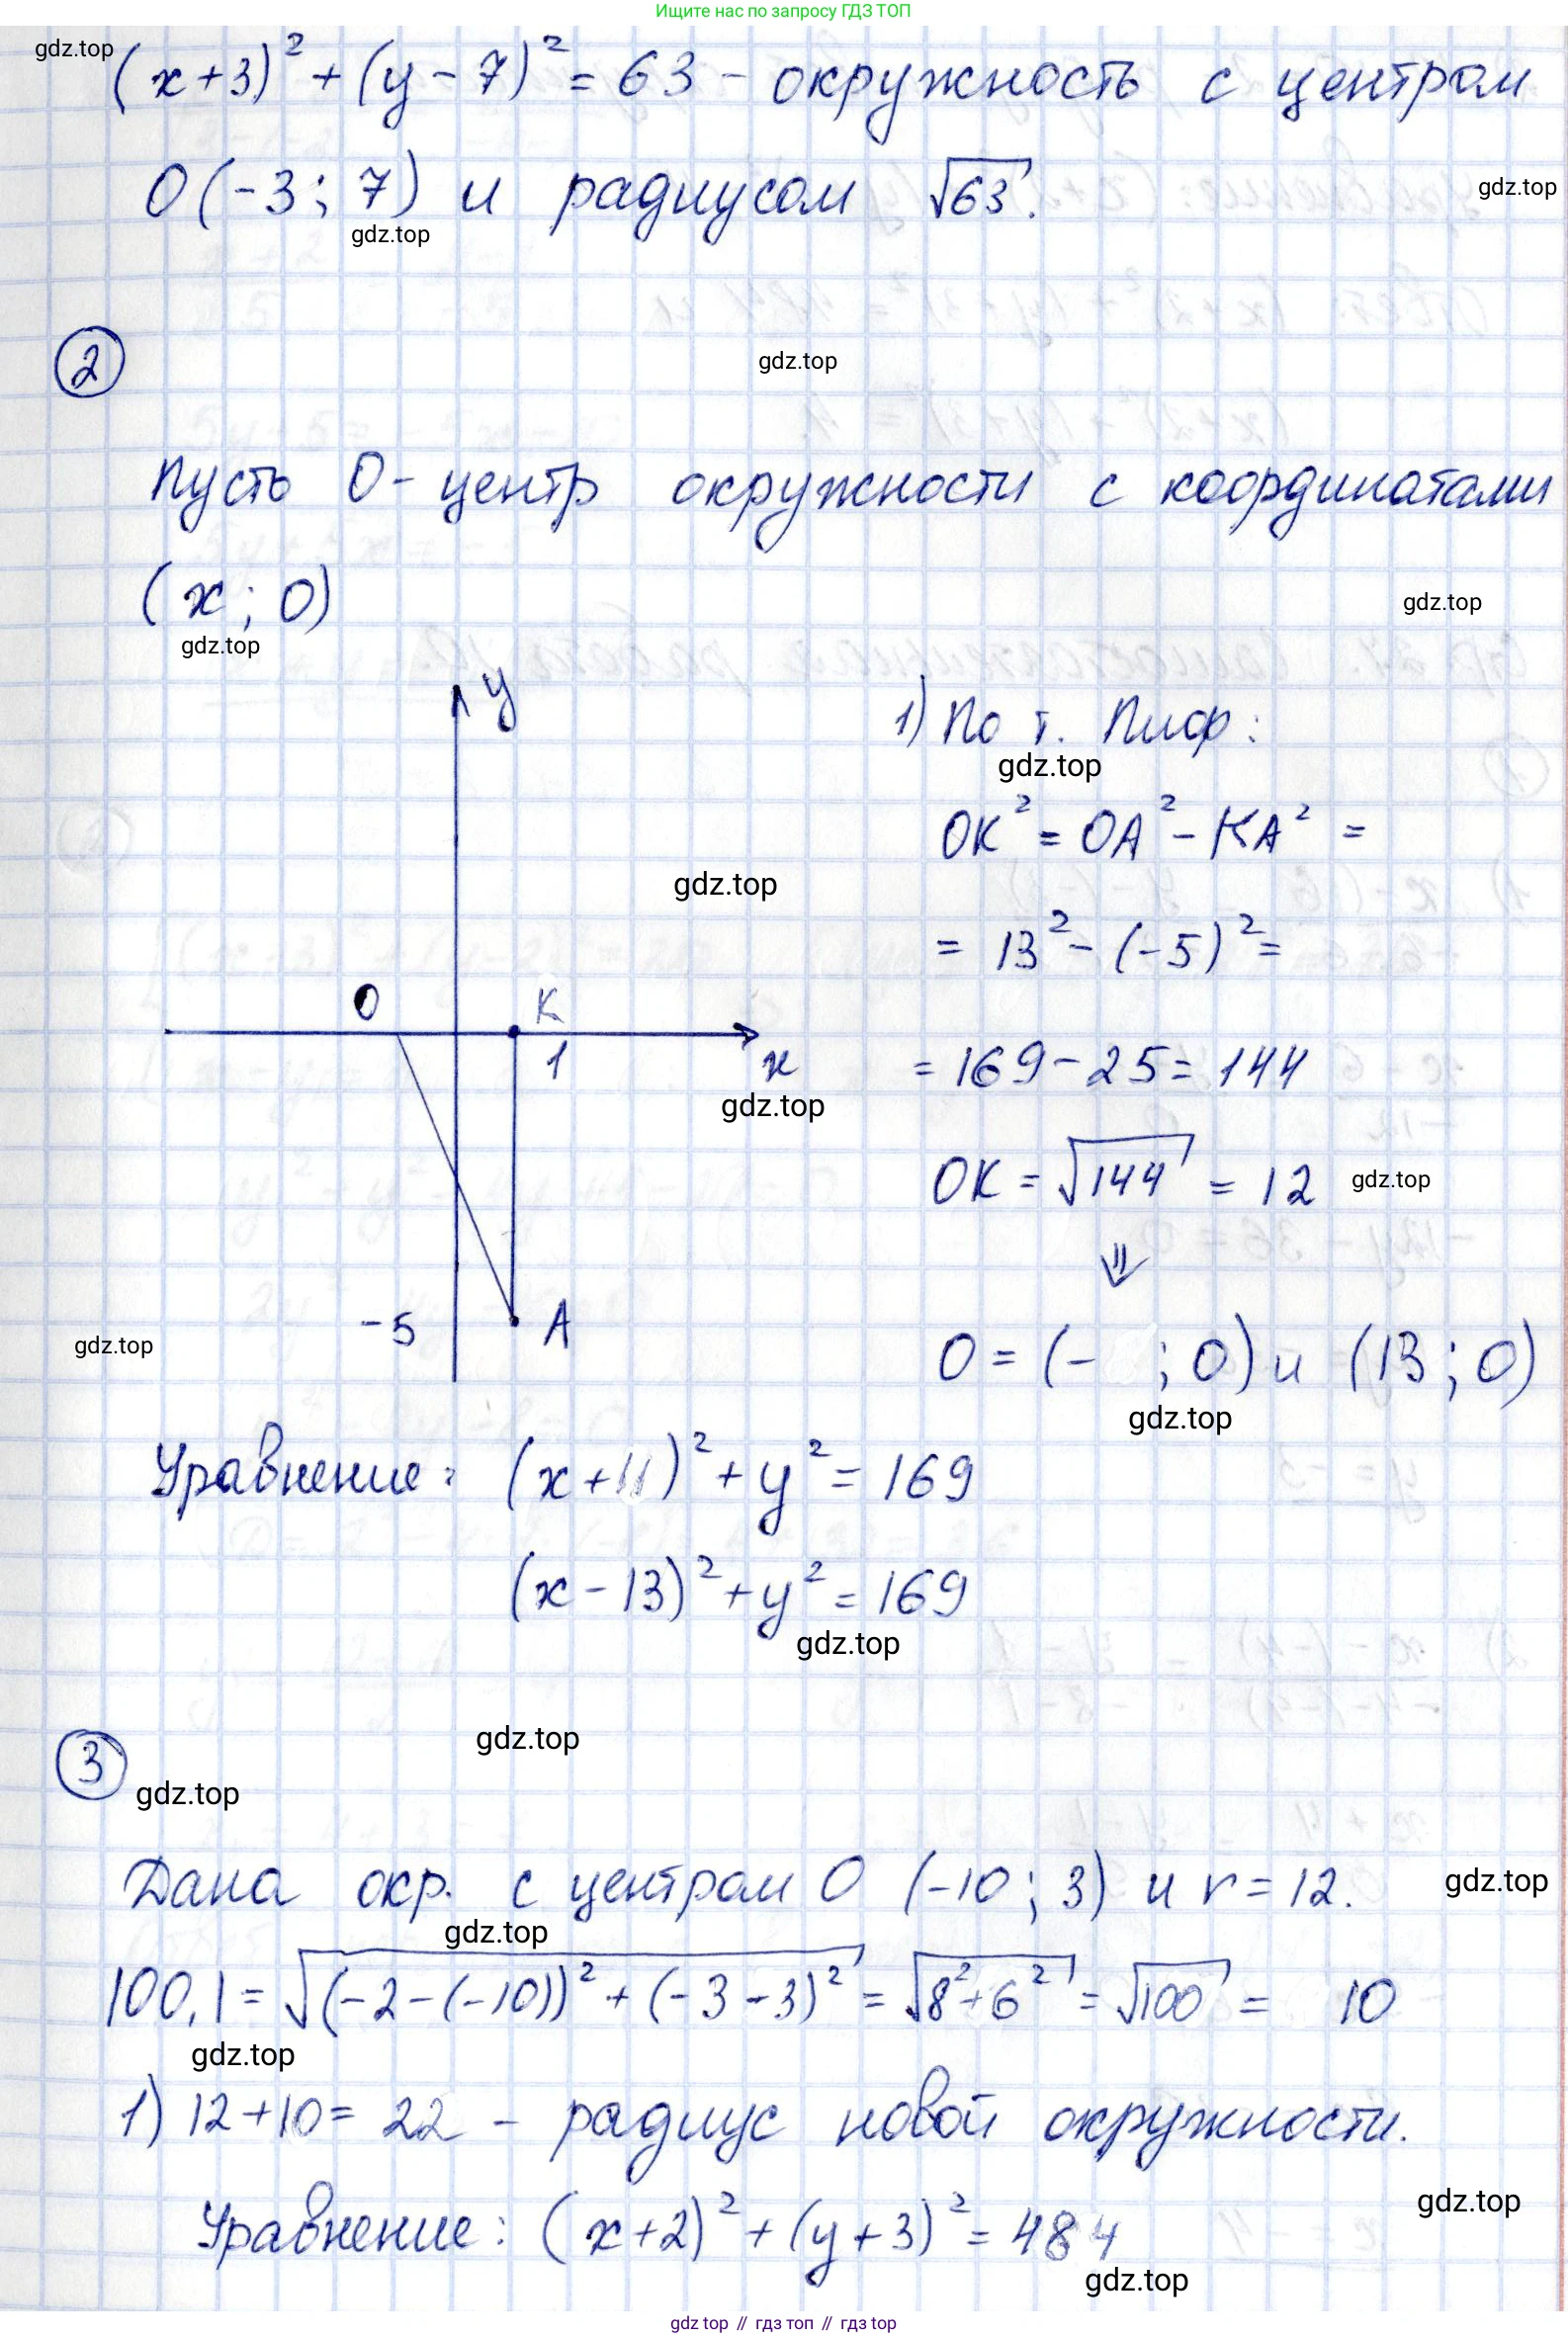 Ищите нас по запросу ГДЗ ТОП
gdz.top
(x+3)² + (y-7)² = 63 - окружность с центром
O(-3; 7) и радиусом √63.
gdz.top
gdz.top
2
gdz.top
Пусть O - центр окружности с координатами
(x; 0)
gdz.top
gdz.top
y
1) По т. Пиф:
gdz.top
OK² = OA² - KA² =
gdz.top
= 13² - (-5)² =
O K
1 x
= 169 - 25 = 144
gdz.top
OK = √144 = 12
gdz.top
⇓
-5 A
gdz.top
O = (- ; 0) и (13; 0)
gdz.top
Уравнение: (x+11)² + y² = 169
(x-13)² + y² = 169
gdz.top
gdz.top
3
gdz.top
Дана окр. с центром O (-10; 3) и r = 12.
gdz.top
gdz.top
|OO₁| = √(-2-(-10))² + (-3-3)² = √8²+6² = √100 = 10
gdz.top
1) 12+10 = 22 - радиус новой окружности.
gdz.top
Уравнение: (x+2)² + (y+3)² = 484
gdz.top
gdz.top // гдз топ // гдз top